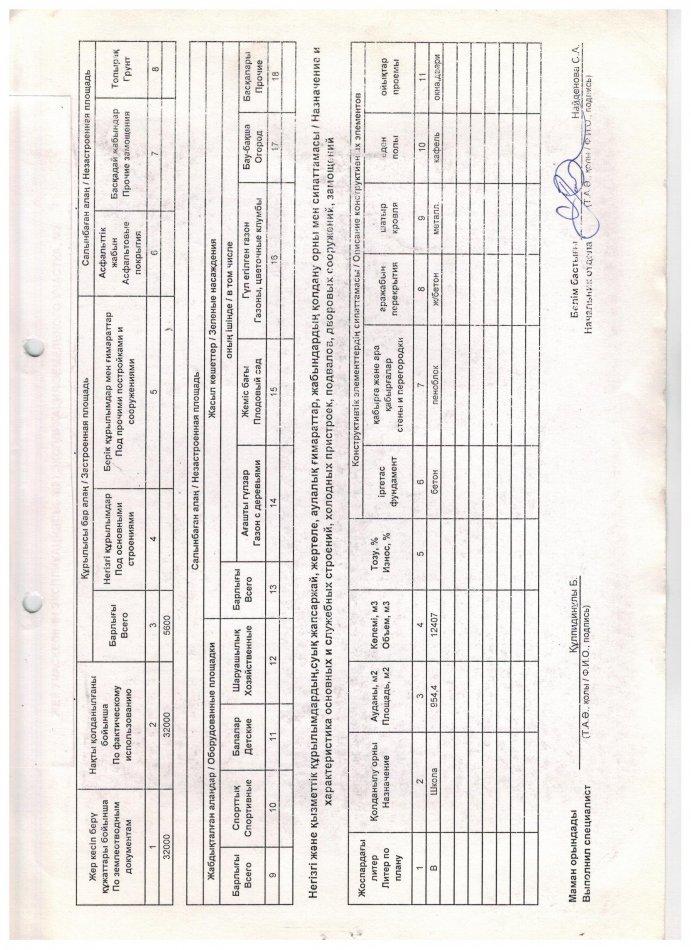 Жер кесіп беру құжаттары бойынша
По землеотводным документам
Нақты қолданылғаны бойынша
По фактическому использованию
Құрылысы бар алаң / Застроенная площадь
Барлығы
Всего
Негізгі құрылымдар
Под основными строениями
Берік құрылымдар мен ғимараттар
Под прочими постройками и сооружениями
Салынбаған алаң / Незастроенная площадь
Асфальттік жабын
Асфальтовые покрытия
Басқадай жабындар
Прочие замощения
Топырақ
Грунт
1 2 3 4 5 6 7 8
32000 32000 5600
Салынбаған алаң / Незастроенная площадь
Жабдықталған алаңдар / Оборудованные площадки
Жасыл көшеттер / Зеленые насаждения
оның ішінде / в том числе
Барлығы
Всего
Спорттық
Спортивные
Балалар
Детские
Шаруашылық
Хозяйственные
Барлығы
Всего
Ағашты гүлзар
Газон с деревьями
Жеміс бағы
Плодовый сад
Гүл егілген газон
Газоны, цветочные клумбы
Бау-бақша
Огород
Басқалары
Прочие
9 10 11 12 13 14 15 16 17 18
Негізгі және қызметтік құрылымдардың,суық жапсаржай, жертөле, аулалық ғимараттар, жабындардың қолдану орны мен сипаттамасы / Назначение и
характеристика основных и служебных строений, холодных пристроек, подвалов, дворовых сооружений, замощений
Жоспардағы литер
Литер по плану
Қолданылу орны
Назначение
Ауданы, м2
Площадь, м2
Көлемі, м3
Объем, м3
Тозу, %
Износ, %
Конструктивтік элементтердің сипаттамасы / Описание конструктивных элементов
іргетас
фундамент
қабырға және ара қабырғалар
стены и перегородки
аражабын
перекрытия
шатыр
кровля
еден
полы
ойықтар
проемы
1 2 3 4 5 6 7 8 9 10 11
В Школа 954,4 12407 бетон пеноблок ж/бетон металл. кафель окна,двери
Маман орындады
Выполнил специалист
Құлпидинұлы Б.
(Т.А.Ә., қолы / Ф.И.О., подпись)
Бөлім бастығы
Начальник отдела
Найденова С.А.
(Т.А.Ә., қолы / Ф.И.О., подпись)